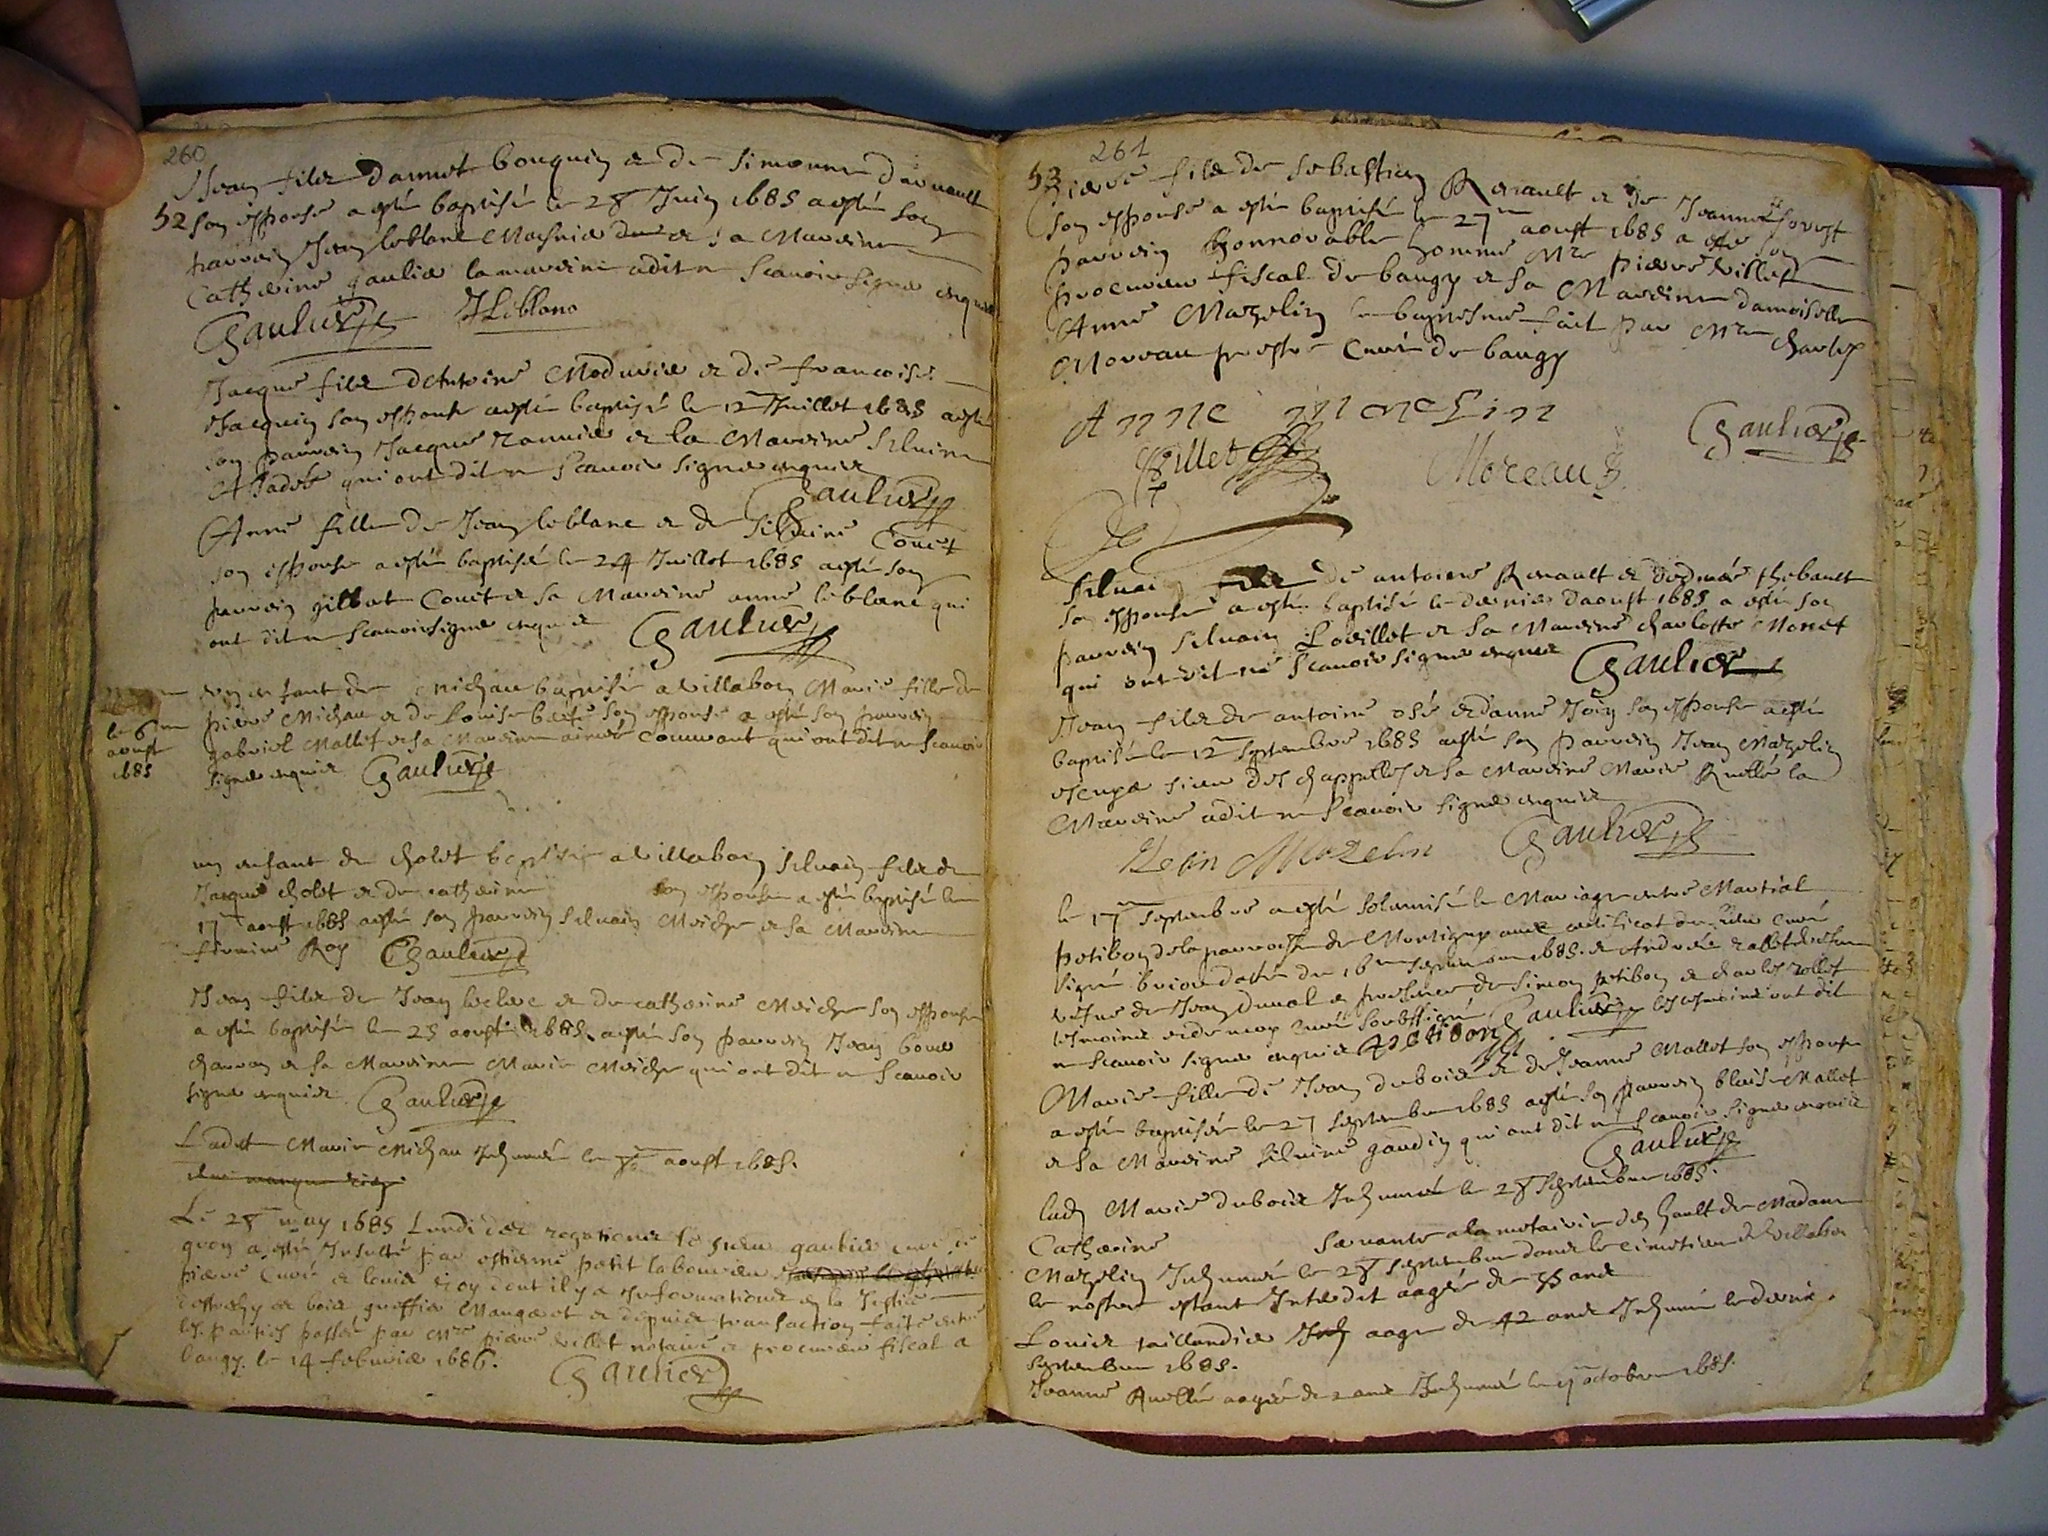 260
Jean filz damet bouquin et de Simonne darnault
52 son espouse a esté baptisé le 28 Juin 1685 a esté son
parrein Jean leblanc et sa Mareine
Catherine gaulier la mareine a dit ne scauoir signer enquise
Gaulier JLeblanc
Jacque filz dAntoine et de francoise
Jacquin son espouse a esté baptisé le 12 Juillet 1685 a esté
son parrein Jacque et la Mareine Siluine
qui ont dit ne scauoir signer enquis
Gaulier
Anne fille de Jean leblanc et de Siluine Couet
son espouse a esté baptisé le 24 Juillet 1685 a esté son
parrein gilbert Couet et sa Mareine anne leblanc qui
ont dit ne scauoir signer enquis Gaulier
le 6
aoust
1685
un enfant de Michau baptisé a villabon Marie fille de
piere Michau et de Louise son espouse a esté son parrein
gabriel Mallet et sa Mareine qui ont dit ne scauoir
signer enquis Gaulier
un enfant de cholet baptisé a villabon Siluain filz de
Jacque cholet et de catherine son espouse a esté baptisé le
17 aoust 1685 a esté son parrein Siluain et sa Mareine
Roy Gaulier
Jean filz de Jean leclerc et de catherine son espouse
a esté baptisé le 25 aoust 1685 a esté son parrein Jean
et sa Mareine Marie qui ont dit ne scauoir
signer enquis Gaulier
Ladite Marie Michau Inhumée le aoust 1685.
Le 28 may 1685 Lundi des rogations le sieur gaulier curé de
gron a esté Insulté par estienne petit laboureur
piere Curé et louis Roy dont il y a Informations en la Justice
et depuis transaction faite entre
les parties passée par Mre piere villet notaire et procureur fiscal a
baugy le 14 februier 1686.
Gaulier
261
53
Piere filz de Sebastien Renault et de Jeanne forest
son espouse a esté baptisé le 27 aoust 1685 a esté son
parrein honnorable homme Mre piere villet
procureur fiscal de baugy et sa Mareine damoiselle
Anne Mazelin le baptesme fait par Mre charles
Moreau prestre Curé de baugy
Anne mazelin
Villet Moreau Gaulier
Siluain filz de antoine Renault et thebault
son espouse a esté baptisé le dernier daoust 1685 a esté son
parrein Siluain Loeillet et sa Mareine charlotte Monet
qui ont dit ne scauoir signer enquis Gaulier
Jean filz de antoine osé et danne son espouse a esté
baptisé le 12 septembre 1685 a esté son parrein Jean Mazelin
sieur des chappelles et sa Mareine Marie Ruellé la
Mareine a dit ne scauoir signer enquise
Jean Mazelin Gaulier
le 17 septembre a esté solemnisé le Mariage entre Martial
petibon de la parroisse de Montigny auec certificat du sieur Curé
signé brion datté du 16 septembre 1685. et Andrée
vefue de Jean Duual en presence de Simon petibon et charles
tesmoins et de moy Curé soubssigné les tesmoins ont dit
ne scauoir signer enquis petibon Gaulier
Marie fille de Jean dubois et de Jeanne Mallet son espouse
a esté baptisée le 27 septembre 1685 a esté son parrein blaise Mallet
et sa Mareine Siluine gaudin qui ont dit ne scauoir signer enquis
Gaulier
lad. Marie dubois Inhumée le 28 septembre 1685.
Catherine seruante a la metairie des de Madame
Mazelin Inhumée le 28 septembre dans le cimetiere de villabon
le nostre estant Interdit aagée de ans
Louis taillandier aagé de 42 ans Inhumé le dernier
septembre 1685.
Jeanne Ruellée aagée de 2 ans Inhumée le octobre 1685.